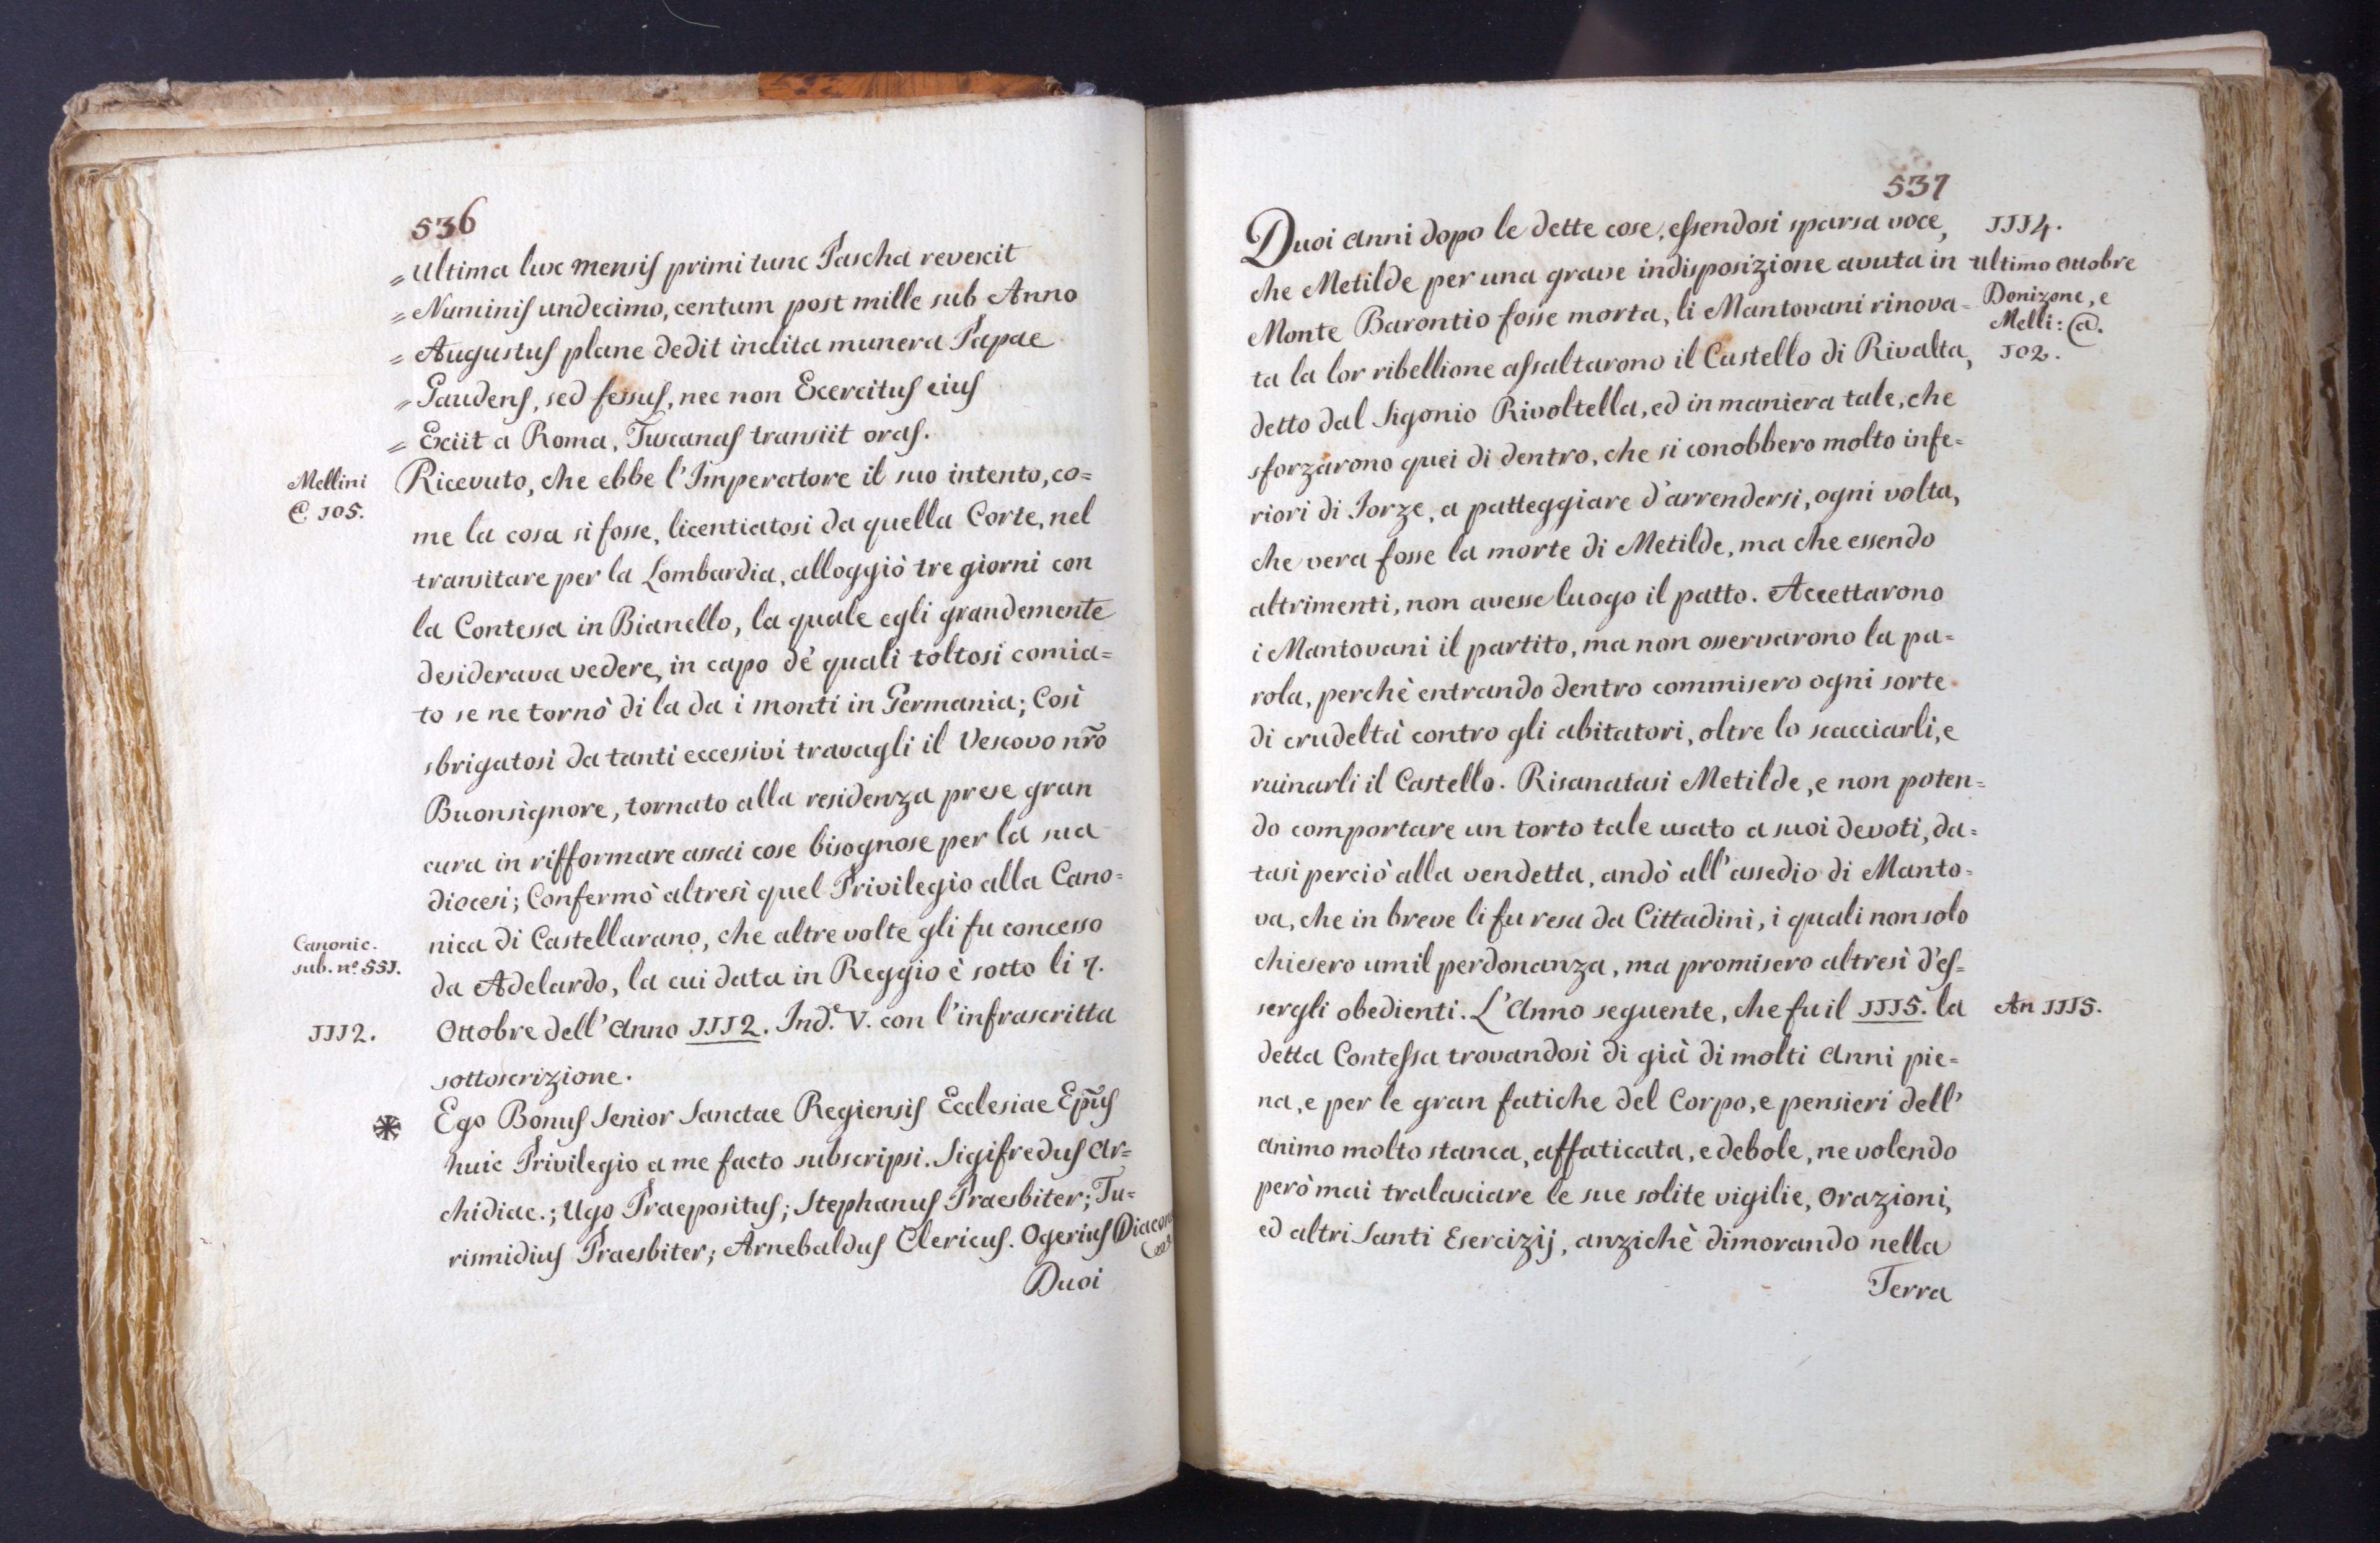 536
„ Ultima lux mensis primi tunc Pascha revexit
„ Numinis undecimo, centum post mille sub Anno
„ Augustus plane dedit inclita munera Papae
„ Gaudens, sed fessus, nec non Excercitus eius
„ Exiit a Roma, Tuscanas transiit oras.
Mellini
C. 105.
Ricevuto, che ebbe l'Imperatore il suo intento, co=
me la cosa si fosse, licentiatosi da quella Corte, nel
transitare per la Lombardia, alloggiò tre giorni con
la Contessa in Bianello, la quale egli grandemente
desiderava vedere, in capo de' quali toltosi comia=
to se ne tornò di la da i monti in Germania; Così
sbrigatosi da tanti eccessivi travagli il Vescovo nr̃o
Buonsignore, tornato alla residenza prese gran
cura in rifformare assai cose bisognose per la sua
diocesi; Confermò altresì quel Privilegio alla Cano=
nica di Castellarano, che altre volte gli fu concesso
Canonic.
sub. nº 551.
da Adelardo, la cui data in Reggio è sotto li 7.
1112.
Ottobre dell'Anno 1112. Ind.e V. con l'infrascritta
sottoscrizione.
Ego Bonus Senior Sanctae Regiensis Ecclesiae Ep̃us
huic Privilegio a me facto subscripsi. Sigifredus Ar=
chidiac.; Ugo Praepositus; Stephanus Praesbiter; Tu=
rismidius Praesbiter; Arnebaldus Clericus. Ogerius Diacon
Duoi
537
Duoi Anni dopo le dette cose, essendosi sparsa voce,
1114.
che Metilde per una grave indisposizione avuta in
ultimo Ottobre
Monte Barontio fosse morta, li Mantovani rinova=
Donizone, e
Melli: @.
102.
ta la lor ribellione assaltarono il Castello di Rivalta,
detto dal Sigonio Rivoltella, ed in maniera tale, che
sforzarono quei di dentro, che si conobbero molto infe=
riori di Forze, a patteggiare d'arrendersi, ogni volta,
che vera fosse la morte di Metilde, ma che essendo
altrimenti, non avesse luogo il patto. Accettarono
i Mantovani il partito, ma non osservarono la pa=
rola, perchè entrando dentro commisero ogni sorte
di crudeltà contro gli abitatori, oltre lo scacciarli, e
ruinarli il Castello. Risanatasi Metilde, e non poten=
do comportare un torto tale usato a suoi devoti, da=
tasi perciò alla vendetta, andò all'assedio di Manto=
va, che in breve li fu resa da Cittadini, i quali non solo
chiesero umil perdonanza, ma promisero altresì d'es=
sergli obedienti. L'Anno seguente, che fu il 1115. la
An 1115.
detta Contessa trovandosi di già di molti Anni pie=
na, e per le gran fatiche del Corpo, e pensieri dell'
animo molto stanca, affaticata, e debole, ne volendo
però mai tralasciare le sue solite vigilie, Orazioni,
ed altri Santi Esercizij, anzichè dimorando nella
Terra